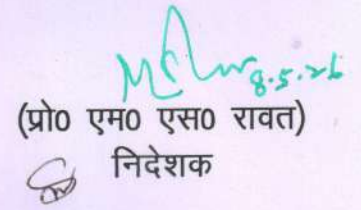 8.5.26
(प्रो0 एम0 एस0 रावत)
निदेशक